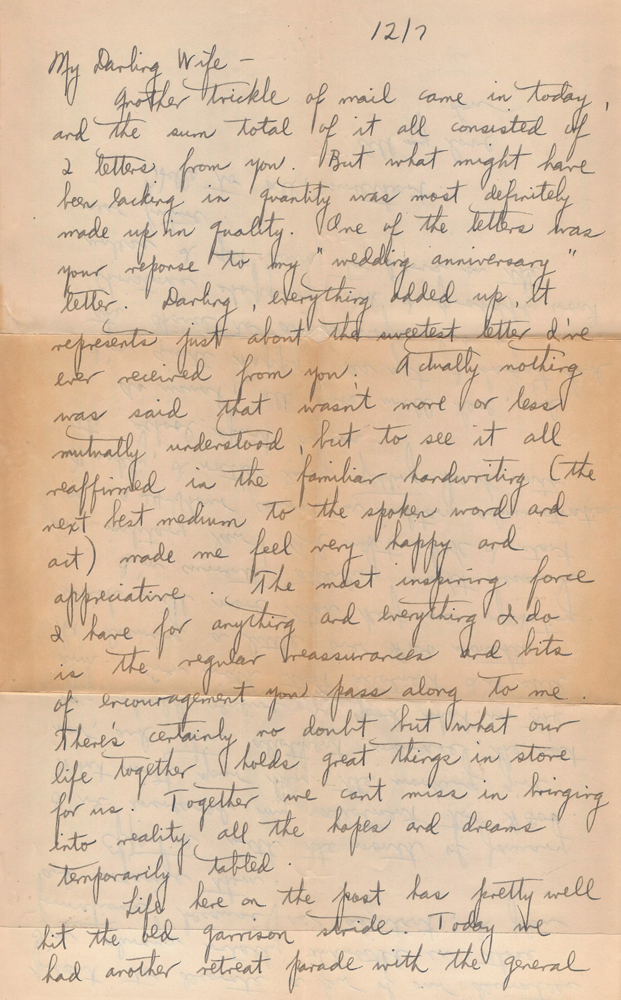 12/7
My Darling Wife —
Another trickle of mail came in today,
and the sum total of it all consisted of
2 letters from you. But what might have
been lacking in quantity was most definitely
made up in quality. One of the letters was
your reponse to my "wedding anniversary"
letter. Darling, everything added up, It
represents just about the sweetest letter I've
ever received from you. Actually nothing
was said that wasn't more or less
mutually understood, but to see it all
reaffirmed in the familiar handwriting (the
next best medium to the spoken word and
act) made me feel very happy and
appreciative. The most inspiring force
I have for anything and everything I do
is the regular reassurances and bits
of encouragement you pass along to me.
There's certainly no doubt but what our
life together holds great things in store
for us. Together we can't miss in bringing
into reality all the hopes and dreams
temporarily tabled.
Life here on the post has pretty well
hit the old garrison stride. Today we
had another retreat parade with the general